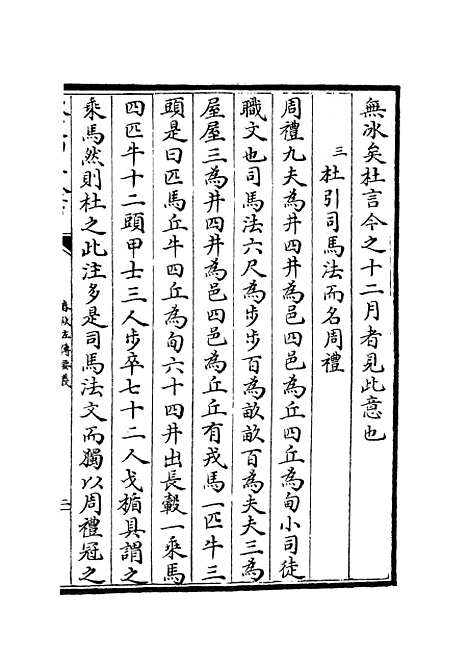 無冰矣杜言今之十二月者見此意也
三 杜引司馬法而名周禮
周禮九夫為井四井為邑四邑為丘四丘為甸小司徒
職文也司馬法六尺為步步百為畝畝百為夫夫三為
屋屋三為井四井為邑四邑為丘丘有戎馬一匹牛三
頭是曰匹馬丘牛四丘為甸六十四井出長轂一乘馬
四匹牛十二頭甲士三人步卒七十二人戈楯具謂之
乘馬然則杜之此注多是司馬法文而獨以周禮冠之
春秋左傳要義